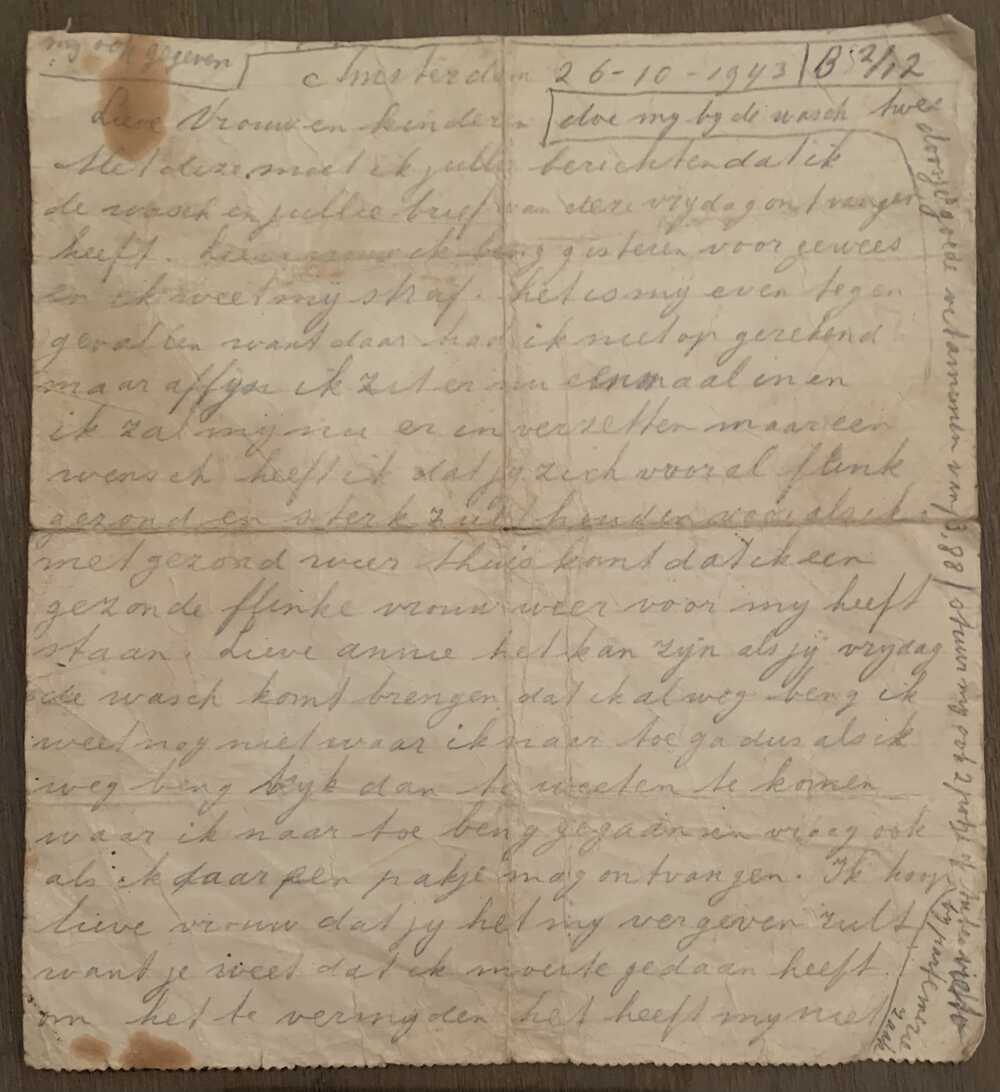 my ook gegeven
Amsterdam 26-10-1943 B 2/12
Lieve Vrouw en kinderen
doe my by de wasch twee
Met deze moet ik jullie berichten dat ik
de wasch en jullie brief van deze vrydag ontvangen
heeft. ik beng gisteren voor gewees
en ik weet myn straf. het is my even tegen
gevallen want daar had ik niet op gerekend
maar affyn ik zit er nu eenmaal in en
ik zal my nu er in verzetten maar een
wensch heeft ik dat jy zich vooral flink
gezond en sterk zult houden voor als ik
met gezond weer thuis komt dat ik een
gezonde flinke vrouw weer voor my heeft
staan. Lieve annie het kan zyn als jy vrydag
de wasch komt brengen dat ik al weg beng ik
weet nog niet waar ik naar toe ga dus als ik
weg beng kyk dan te weeten te komen
waar ik naar toe beng gegaan en vraag ook
als ik daar een pakje mag ontvangen. Ik hoop
lieve vrouw dat jy het my vergeven zult
want je weet dat ik moeite gedaan heeft
om het te vermyden het heeft my niet
goede van / B.88 / stuur my ook 2